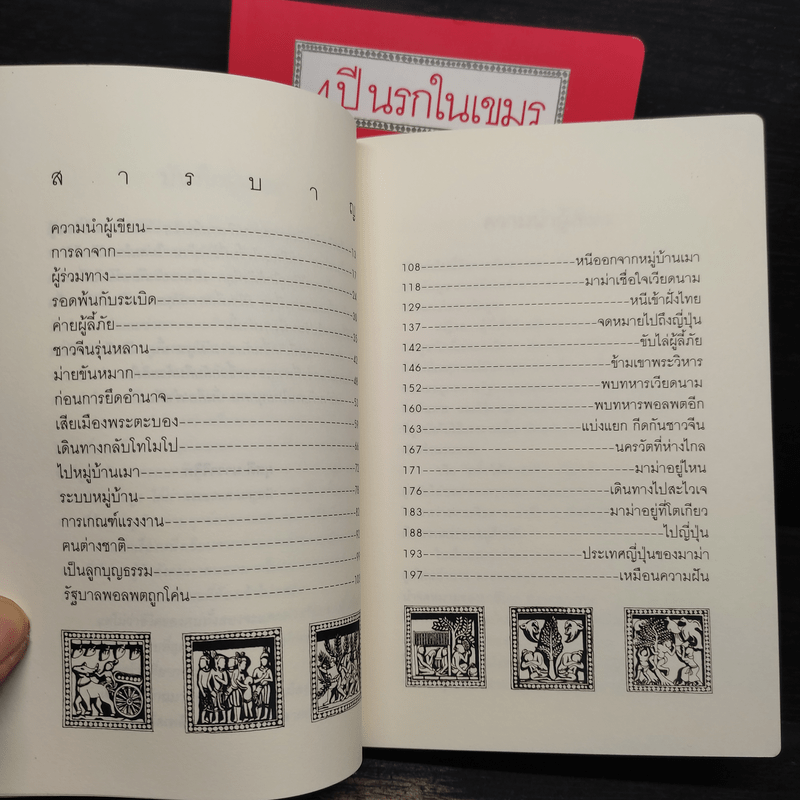 4 ปี นรกในเขมร
สารบาญ
ความนำผู้เขียน
การลาจาก 13
ผู้ร่วมทาง
รอดพ้นกับระเบิด
ค่ายผู้ลี้ภัย
ชาวจีนรุ่นหลาน
ม่ายขันหมาก
ก่อนการยึดอำนาจ
เสียเมืองพระตะบอง
เดินทางกลับโทโมโป
ไปหมู่บ้านเมา
ระบบหมู่บ้าน
การเกณฑ์แรงงาน
คนต่างชาติ
เป็นลูกบุญธรรม
รัฐบาลพอลพตถูกโค่น
108 หนีออกจากหมู่บ้านเมา
118 มาม่าเชื่อใจเวียดนาม
129 หนีเข้าฝั่งไทย
137 จดหมายไปถึงญี่ปุ่น
142 ขับไล่ผู้ลี้ภัย
146 ข้ามเขาพระวิหาร
152 พบทหารเวียดนาม
160 พบทหารพอลพตอีก
163 แบ่งแยก กีดกันชาวจีน
167 นครวัดที่ห่างไกล
171 มาม่าอยู่ไหน
176 เดินทางไปสะไวเจ
183 มาม่าอยู่ที่โตเกียว
188 ไปญี่ปุ่น
193 ประเทศญี่ปุ่นของมาม่า
197 เหมือนความฝัน